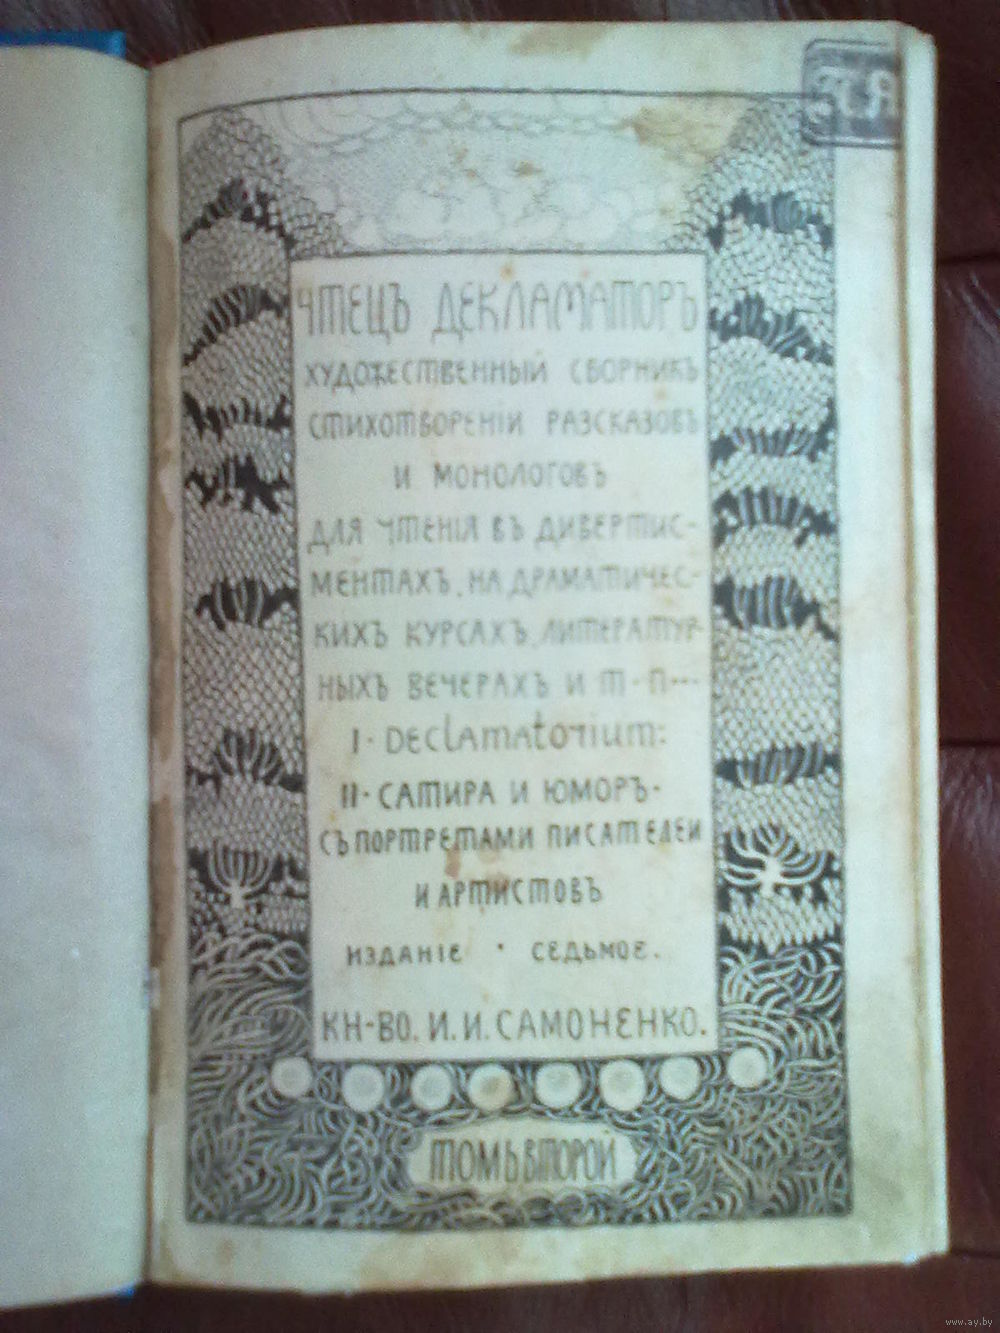 ЧТЕЦЪ ДЕКЛАМАТОРЪ
ХУДОЖЕСТВЕННЫЙ СБОРНИКЪ
СТИХОТВОРЕНІЙ РАЗСКАЗОВЪ
И МОНОЛОГОВЪ
ДЛЯ ЧТЕНІЯ ВЪ ДИВЕРТИС-
МЕНТАХЪ, НА ДРАМАТИЧЕС-
КИХЪ КУРСАХЪ, ЛИТЕРАТУР-
НЫХЪ ВЕЧЕРАХЪ И Т·П···
I· DECLAMATORIUM:
II· САТИРА И ЮМОРЪ·
СЪ ПОРТРЕТАМИ ПИСАТЕЛЕЙ
И АРТИСТОВЪ
ИЗДАНІЕ · СЕДЬМОЕ.
КН-ВО. И. И. САМОНЕНКО.
ТОМЪ ВТОРОЙ
www.ay.by